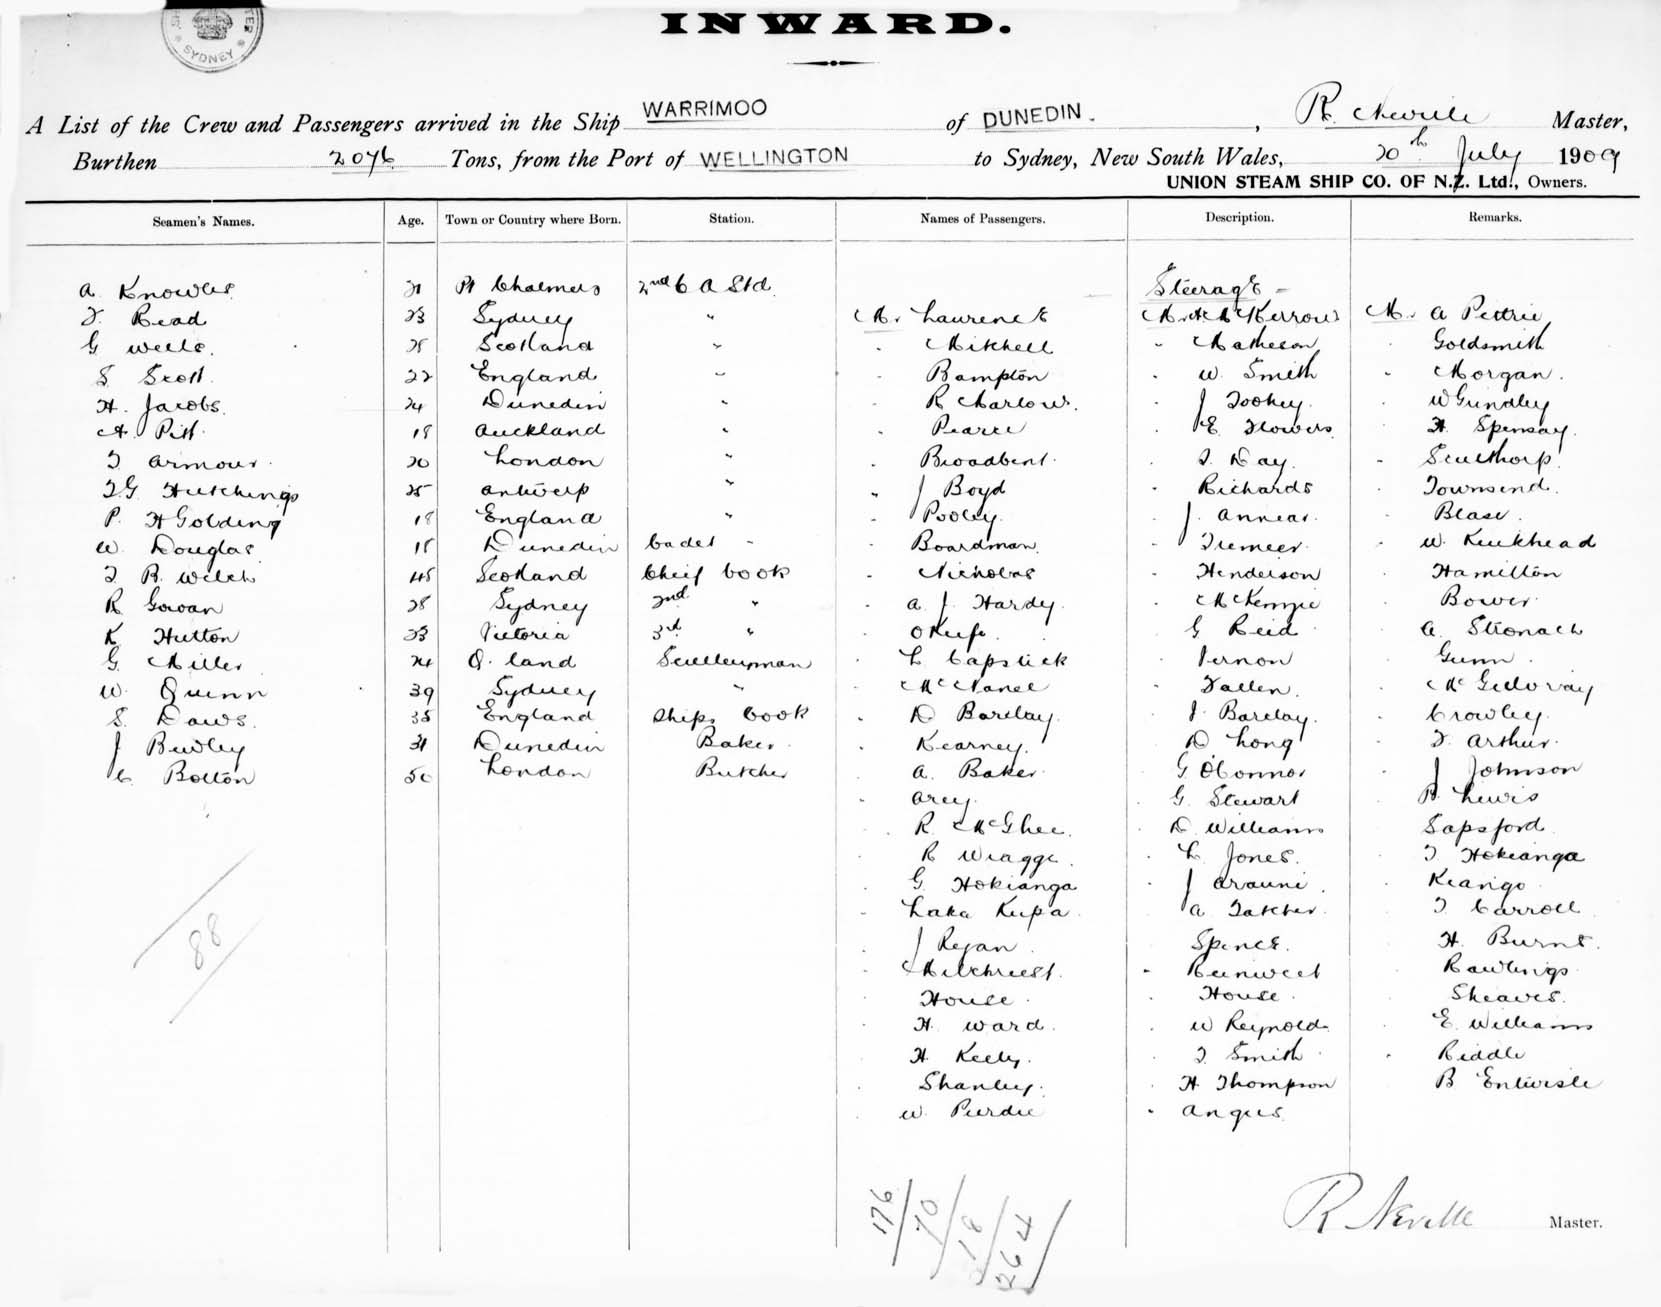 SYDNEY
INWARD.
A List of the Crew and Passengers arrived in the Ship WARRIMOO of DUNEDIN. , R. Neville Master,
Burthen 2076 Tons, from the Port of WELLINGTON to Sydney, New South Wales, 20th July 1909
UNION STEAM SHIP CO. OF N.Z. Ltd., Owners.
Seamen's Names. Age. Town or Country where Born. Station. Names of Passengers. Description. Remarks.
A. Knowles 21 Pt Chalmers 2nd C A Std. Steerage -
F. Read 23 Sydney " Mr. Laurence Mr. A McKerrow Mr. A Petrie
G Wells. 25 Scotland " " Mitchell " Matheson " Goldsmith
S Scott 22 England " " Bampton " W. Smith " Morgan.
H. Jacobs. 24 Dunedin " " R Marlow. " J Tookey. " W Grindley
A. Pitt. 19 Auckland " " Pearce " E. Flowers " H. Spensay.
T Armour. 20 London " " Broadbent. " T. Day. " Sculthorp.
T.G. Hutchings 25 Antwerp " " J Boyd " Richards " Townsend.
P. H Golding 18 England " " Pooley. " J. Annear. " Blase.
W. Douglas 18 Dunedin Cadet " " Boardman. " Tremeer. " W. Kirkhead
T. R. Welch 45 Scotland Cheif Cook " Nicholas " Henderson " Hamilton
R Gowan 28 Sydney 2nd " " A. J. Hardy. " McKenzie " Bower.
K Hutton 23 Victoria 3rd " " OKeefe. " G Reid " A. Stronach
G. Miller 24 Q. land Sculleryman " L Capstick " Vernon " Gunn.
W. Quinn 39 Sydney " " McNanee " Fallen. " McGilvray
S. Daws. 35 England Ships Cook " D Barclay. " J. Barclay. " Crowley.
J Bewley 31 Dunedin Baker. " Kearney. " D Long " F. Arthur.
C. Bolton 50 London Butcher " A. Baker. " G OConnor " J Johnson
" Arey. " G. Stewart " R. Lewis
" R. McGhee. " D. Williams " Sapsford.
" R Wragge. " L. Jones. " T Hokianga
" G. Hokianga " J Arauni. " Keango
" Laka Kupa. " A Tatcher. " T. Carroll
" J Regan. " Spence. " H. Burns.
" Milchriest. " " Rawlings
" House. " House. " Sheaves.
" H. Ward. " W Reynolds " E. Williams
" H. Kelly. " T. Smith. " Riddle
" Shanley. " H. Thompson " B Entwisle
" W. Purdie " Angus.
88
176
70
18
264
R Neville Master.